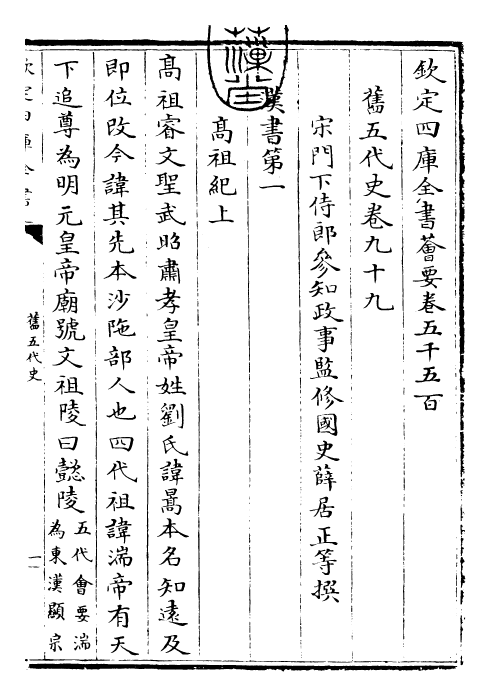 欽定四庫全書薈要卷五千五百
舊五代史卷九十九
宋門下侍郎參知政事監修國史薛居正等撰
漢書第一
髙祖紀上
髙祖睿文聖武昭肅孝皇帝姓劉氏諱暠本名知逺及
即位改今諱其先本沙陁部人也四代祖諱湍帝有天
下追尊為明元皇帝廟號文祖陵曰懿陵五代會要湍
為東漢顯宗
舊五代史
一